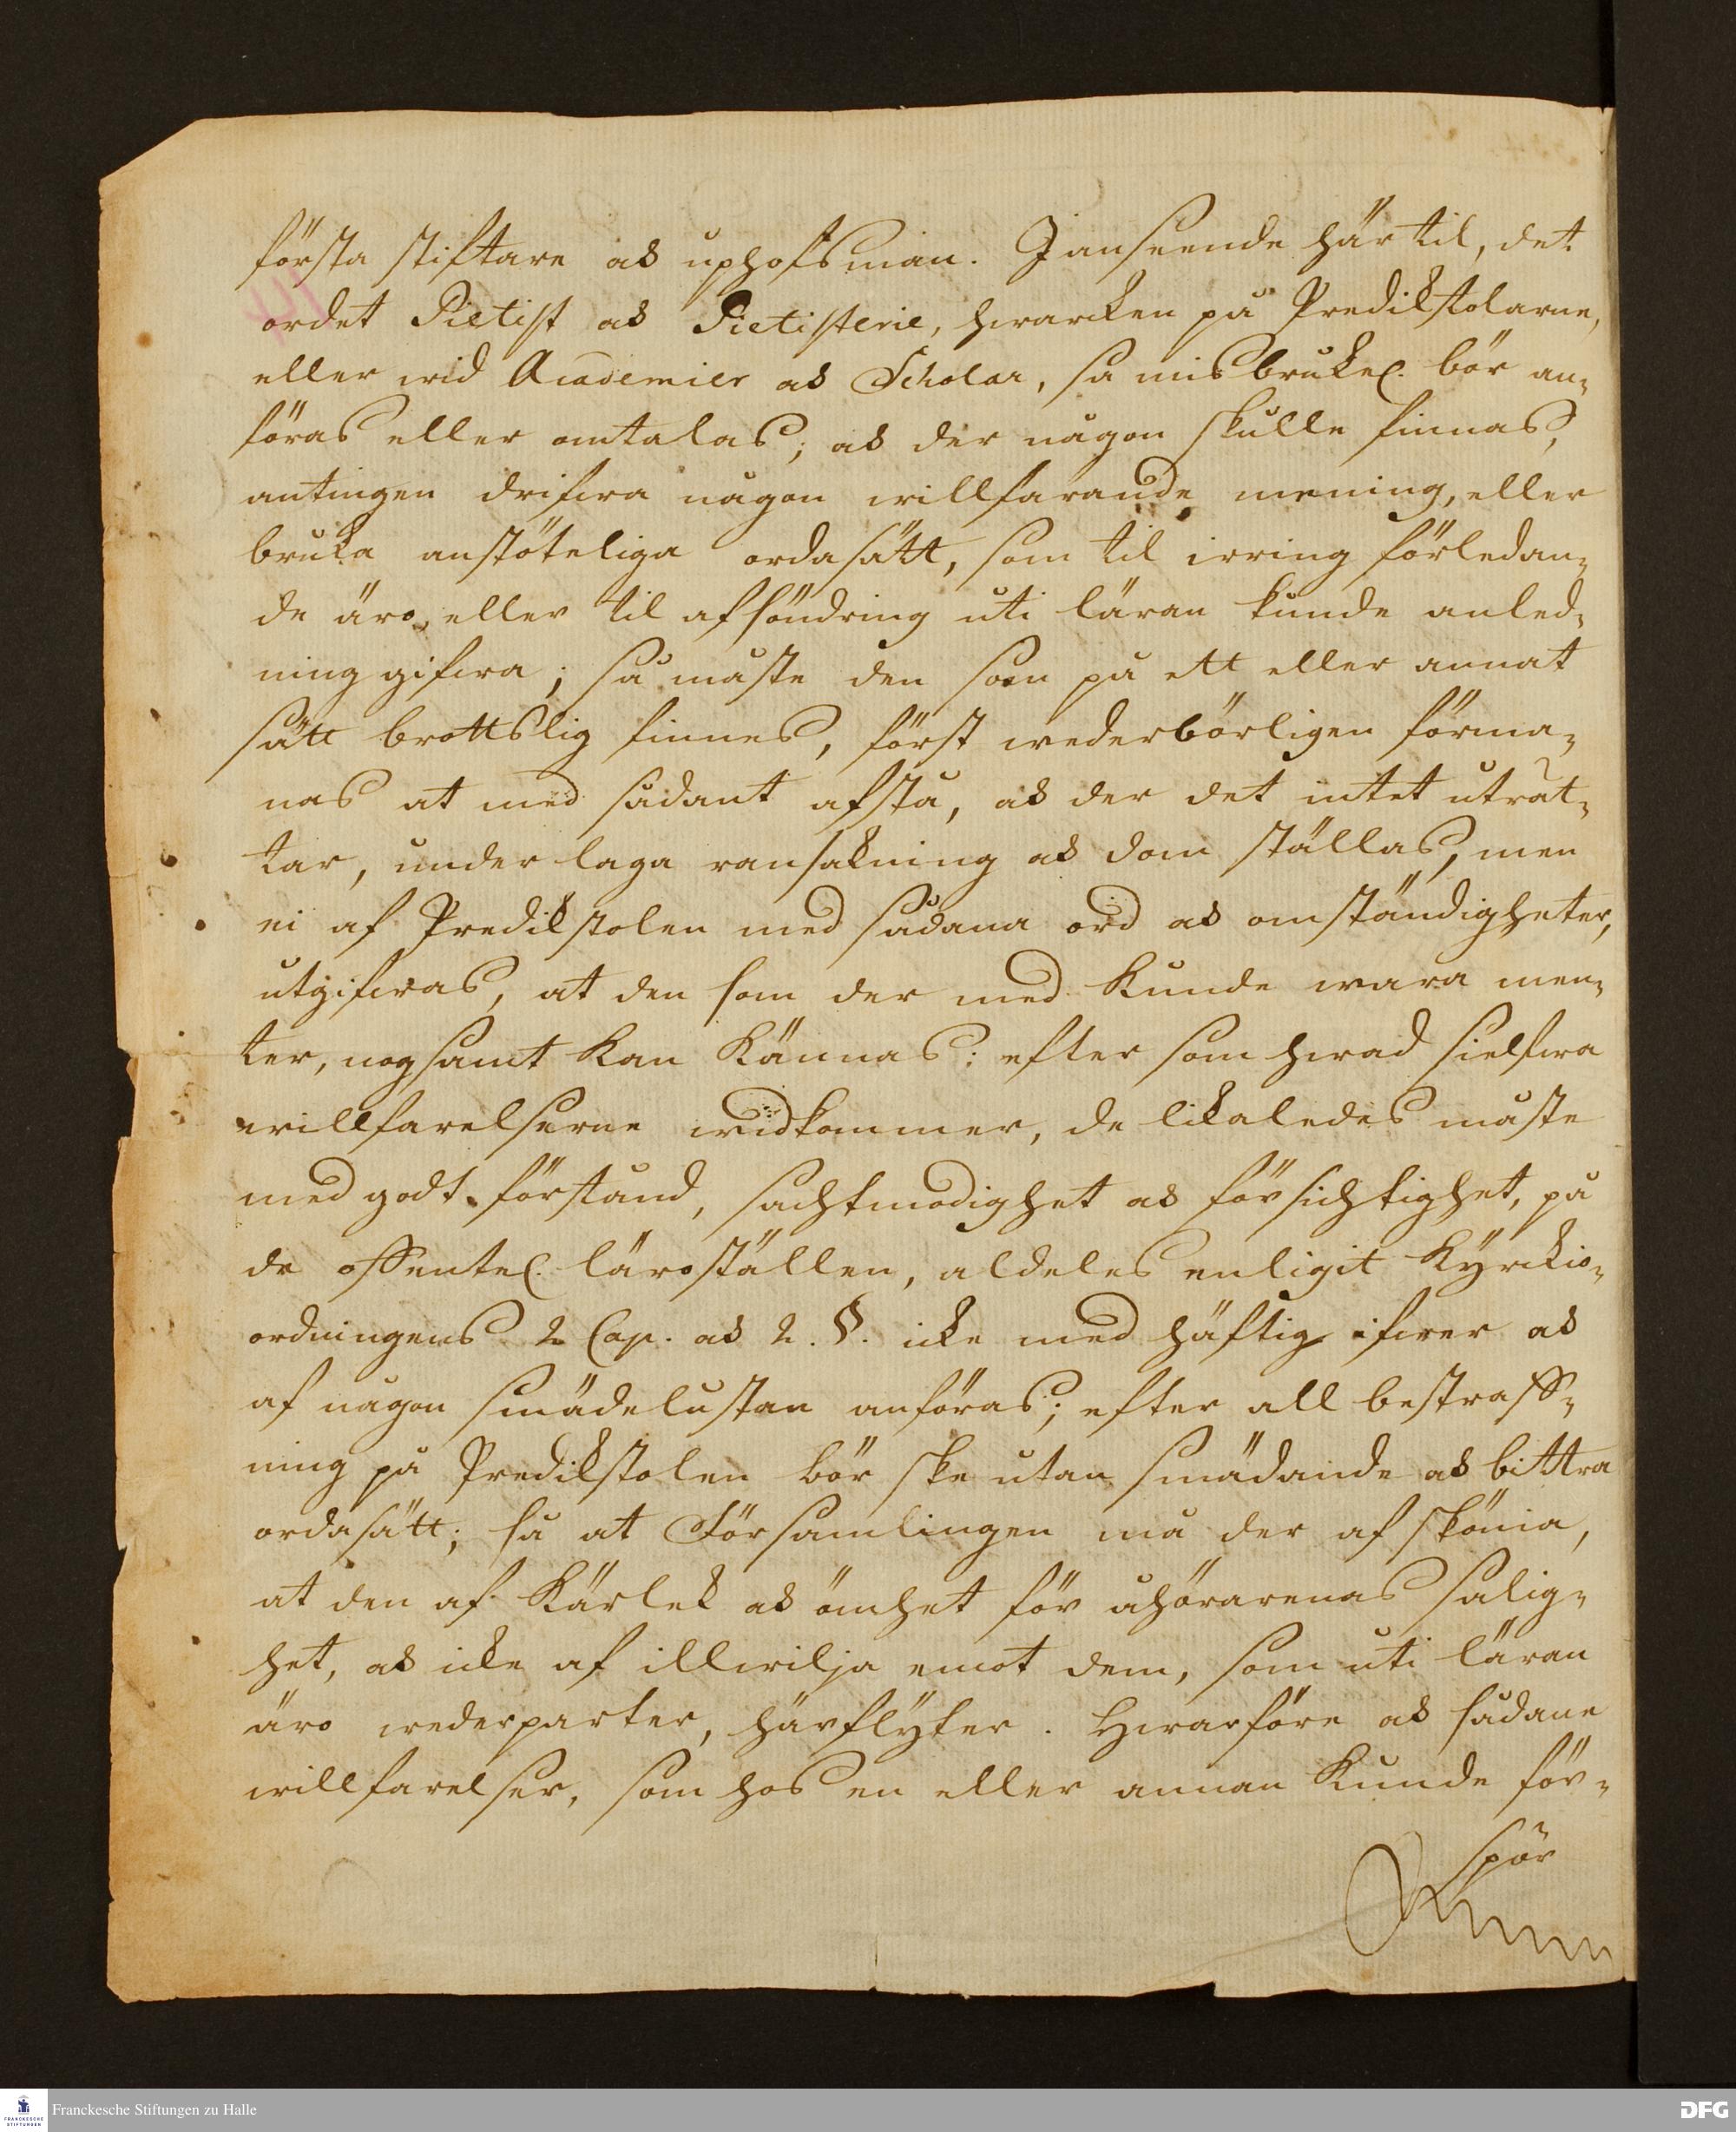 första stiftare ack uphofsman. I anseende här til, det
ordet Pietist ack Pietisterie, hwarcken på Predikstolarne,
eller wid Academier ack Scholar, så misbrukel. bör an=
föras eller omtalas; ack der någon skulle finnas,
antingen drifwa någon willfarande mening, eller
bruka anstöteliga ordasätt, som til irring förledan=
de äro, eller til afsöndring uti läran kunde anled=
ning gifwa; så måste den som på ett eller annat
sätt brottslig finnes, först wederbörligen förma=
nas at med sådant afstå, ack der det intet uträt=
tar, under laga ransakning ack dom ställas, men
ei af Predikstolen med sådana ord ack omständigheter,
utgifwas, at den som der med kunde wara men=
ter, nogsamt kan kännas: efter som hwad sielfwa
willfarelserne widkommer, de likaledes måste
med godt förstånd, sachtmodighet ack försichtighet, på
de offentel. läroställen, aldeles enligit Kyrckio=
ordningens 2 Cap. ack 2. §. icke med häftig ifwer ack
af någon smädelustan anföras; efter all bestraff=
ning på Predikstolen bör ske utan smädande ack bittra
ordasätt; så at Församlingen må der af skönia,
at den af Kärlek ack ömhet för åhörarenas salig=
het, ack icke af illwilja emot dem, som uti läran
äro wederparter, härflyter. Hwarföre ack sådane
willfarelser, som hos en eller annan kunde för=
spör
Franckesche Stiftungen zu Halle
FRANCKESCHE
STIFTUNGEN
DFG